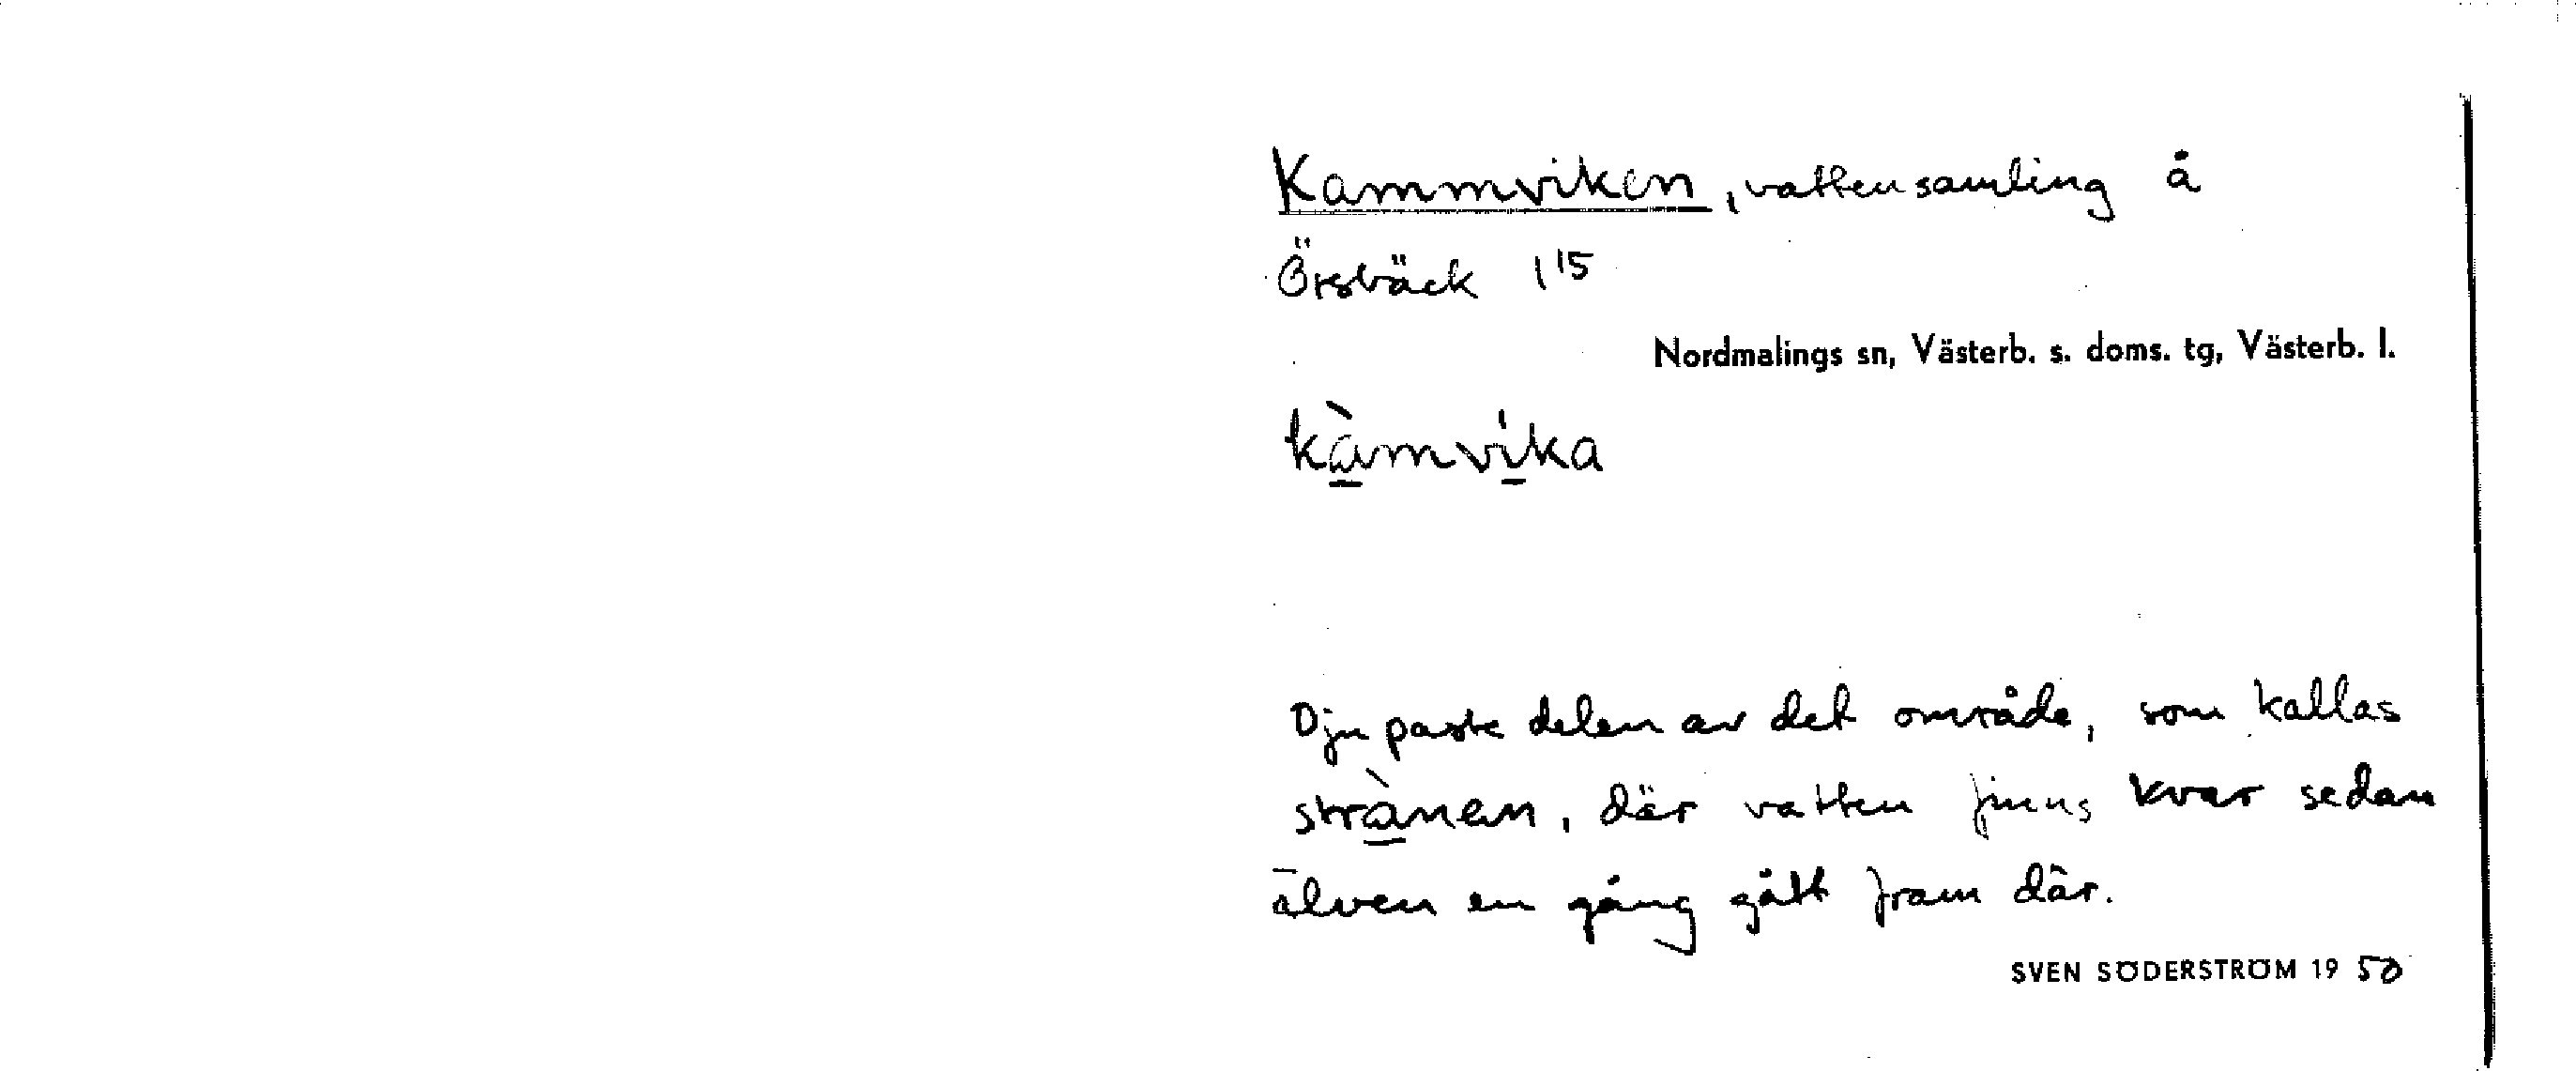 Kammviken, vattensamling å
Örsbäck 1¹⁵
Nordmalings sn, Västerb. s. doms. tg, Västerb. l.
kа̱̀mvi̱ka
Djupaste delen av det område, som kallas
strà̱nen, där vatten finns kvar sedan
älven en gång gått fram där.
SVEN SÖDERSTRÖM 19 50